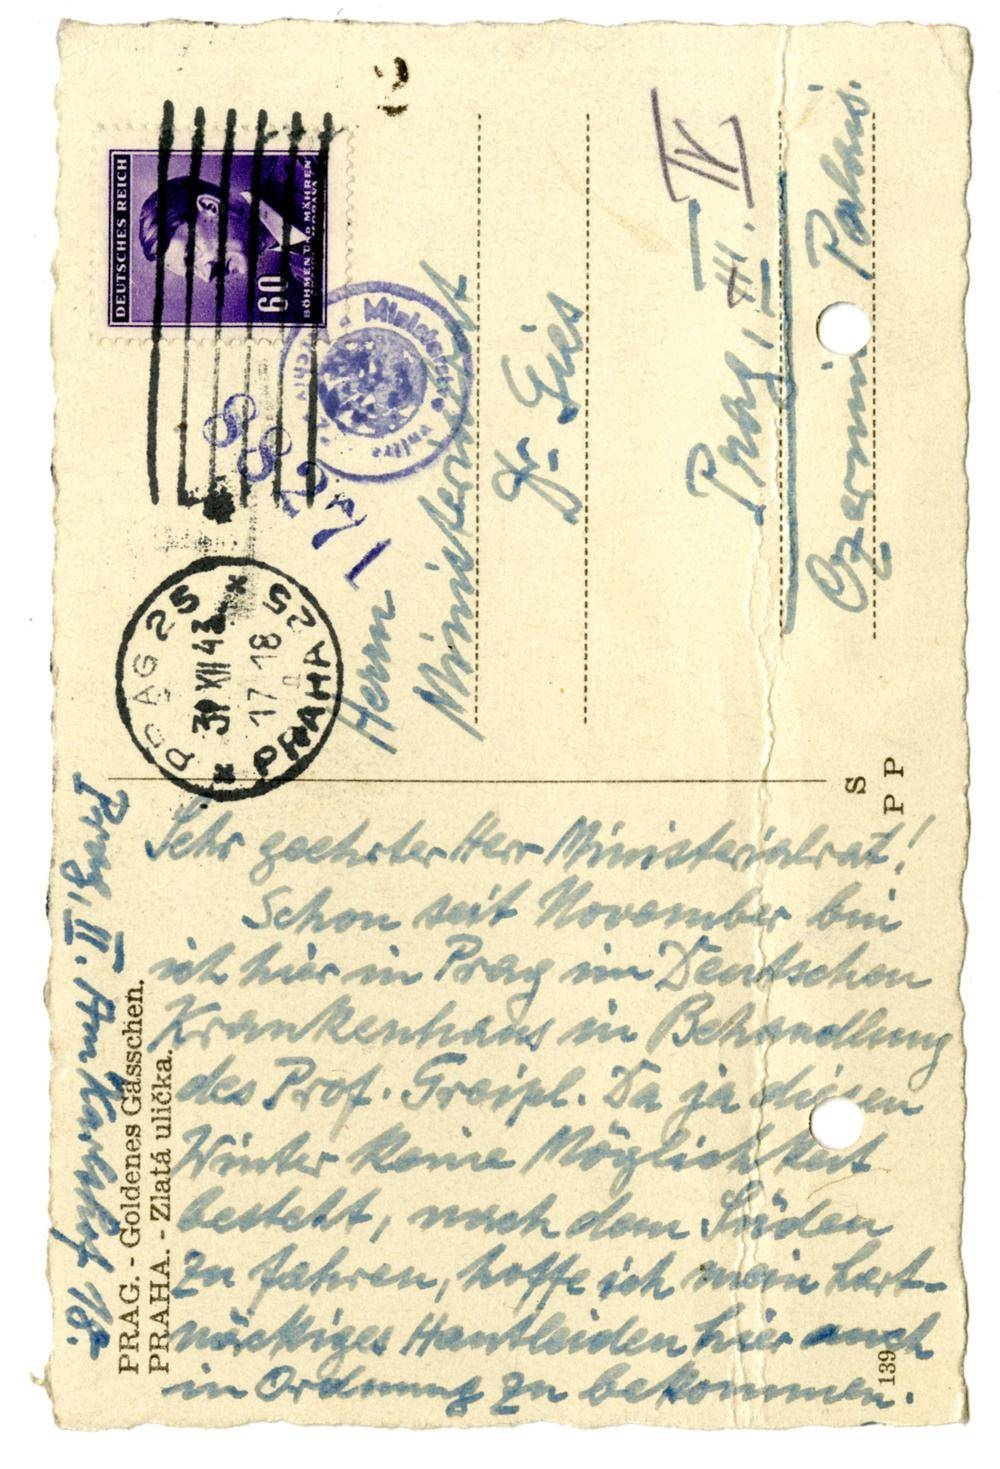 PRAG. - Goldenes Gässchen.
PRAHA. - Zlatá ulička.
Prag, II. Am Karlshof 18.
Sehr geehrter Herr Ministerialrat!
Schon seit November bin
ich hier in Prag im Deutschen
Krankenhaus in Behandlung
des Prof. Greipl. Da ja diesen
Winter keine Möglichkeit
besteht, nach dem Süden
zu fahren, hoffe ich mein hart-
näckiges Hautleiden hier auch
in Ordnung zu bekommen.
139
S
P P
DEUTSCHES REICH
60
BÖHMEN UND MÄHREN
PRAG 25
31 XII 43
17 18
PRAHA 25
Herrn
Ministerialrat
Dr. Gies
Prag, III. IV
Czernin Palais.